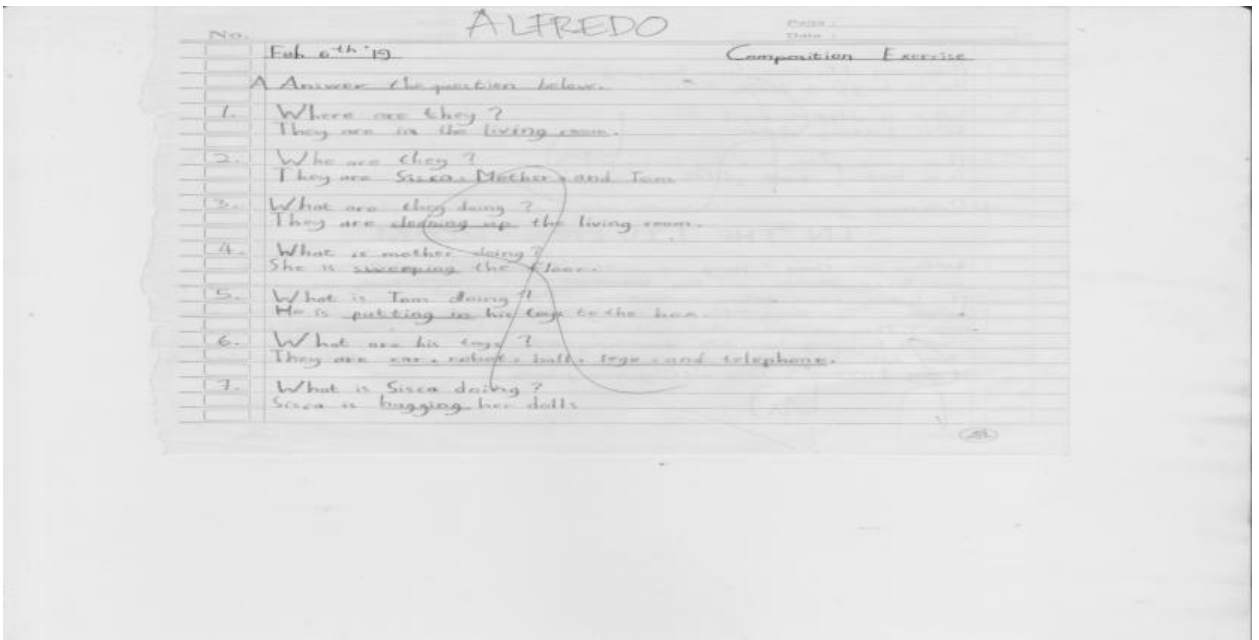 ALFREDO
No.
Date :
Feb 6th '19 Composition Exercise
A Answer the question below.
1. Where are they ?
They are in the living room.
2. Who are they ?
They are Sisca, Mother, and Tom
3. What are they doing ?
They are cleaning up the living room.
4. What is mother doing ?
She is sweeping the floor.
5. What is Tom doing ?
He is putting in his toys to the box.
6. What are his toys ?
They are car, robot, ball, lego, and telephone.
7. What is Sisca doing ?
Sisca is hugging her dolls